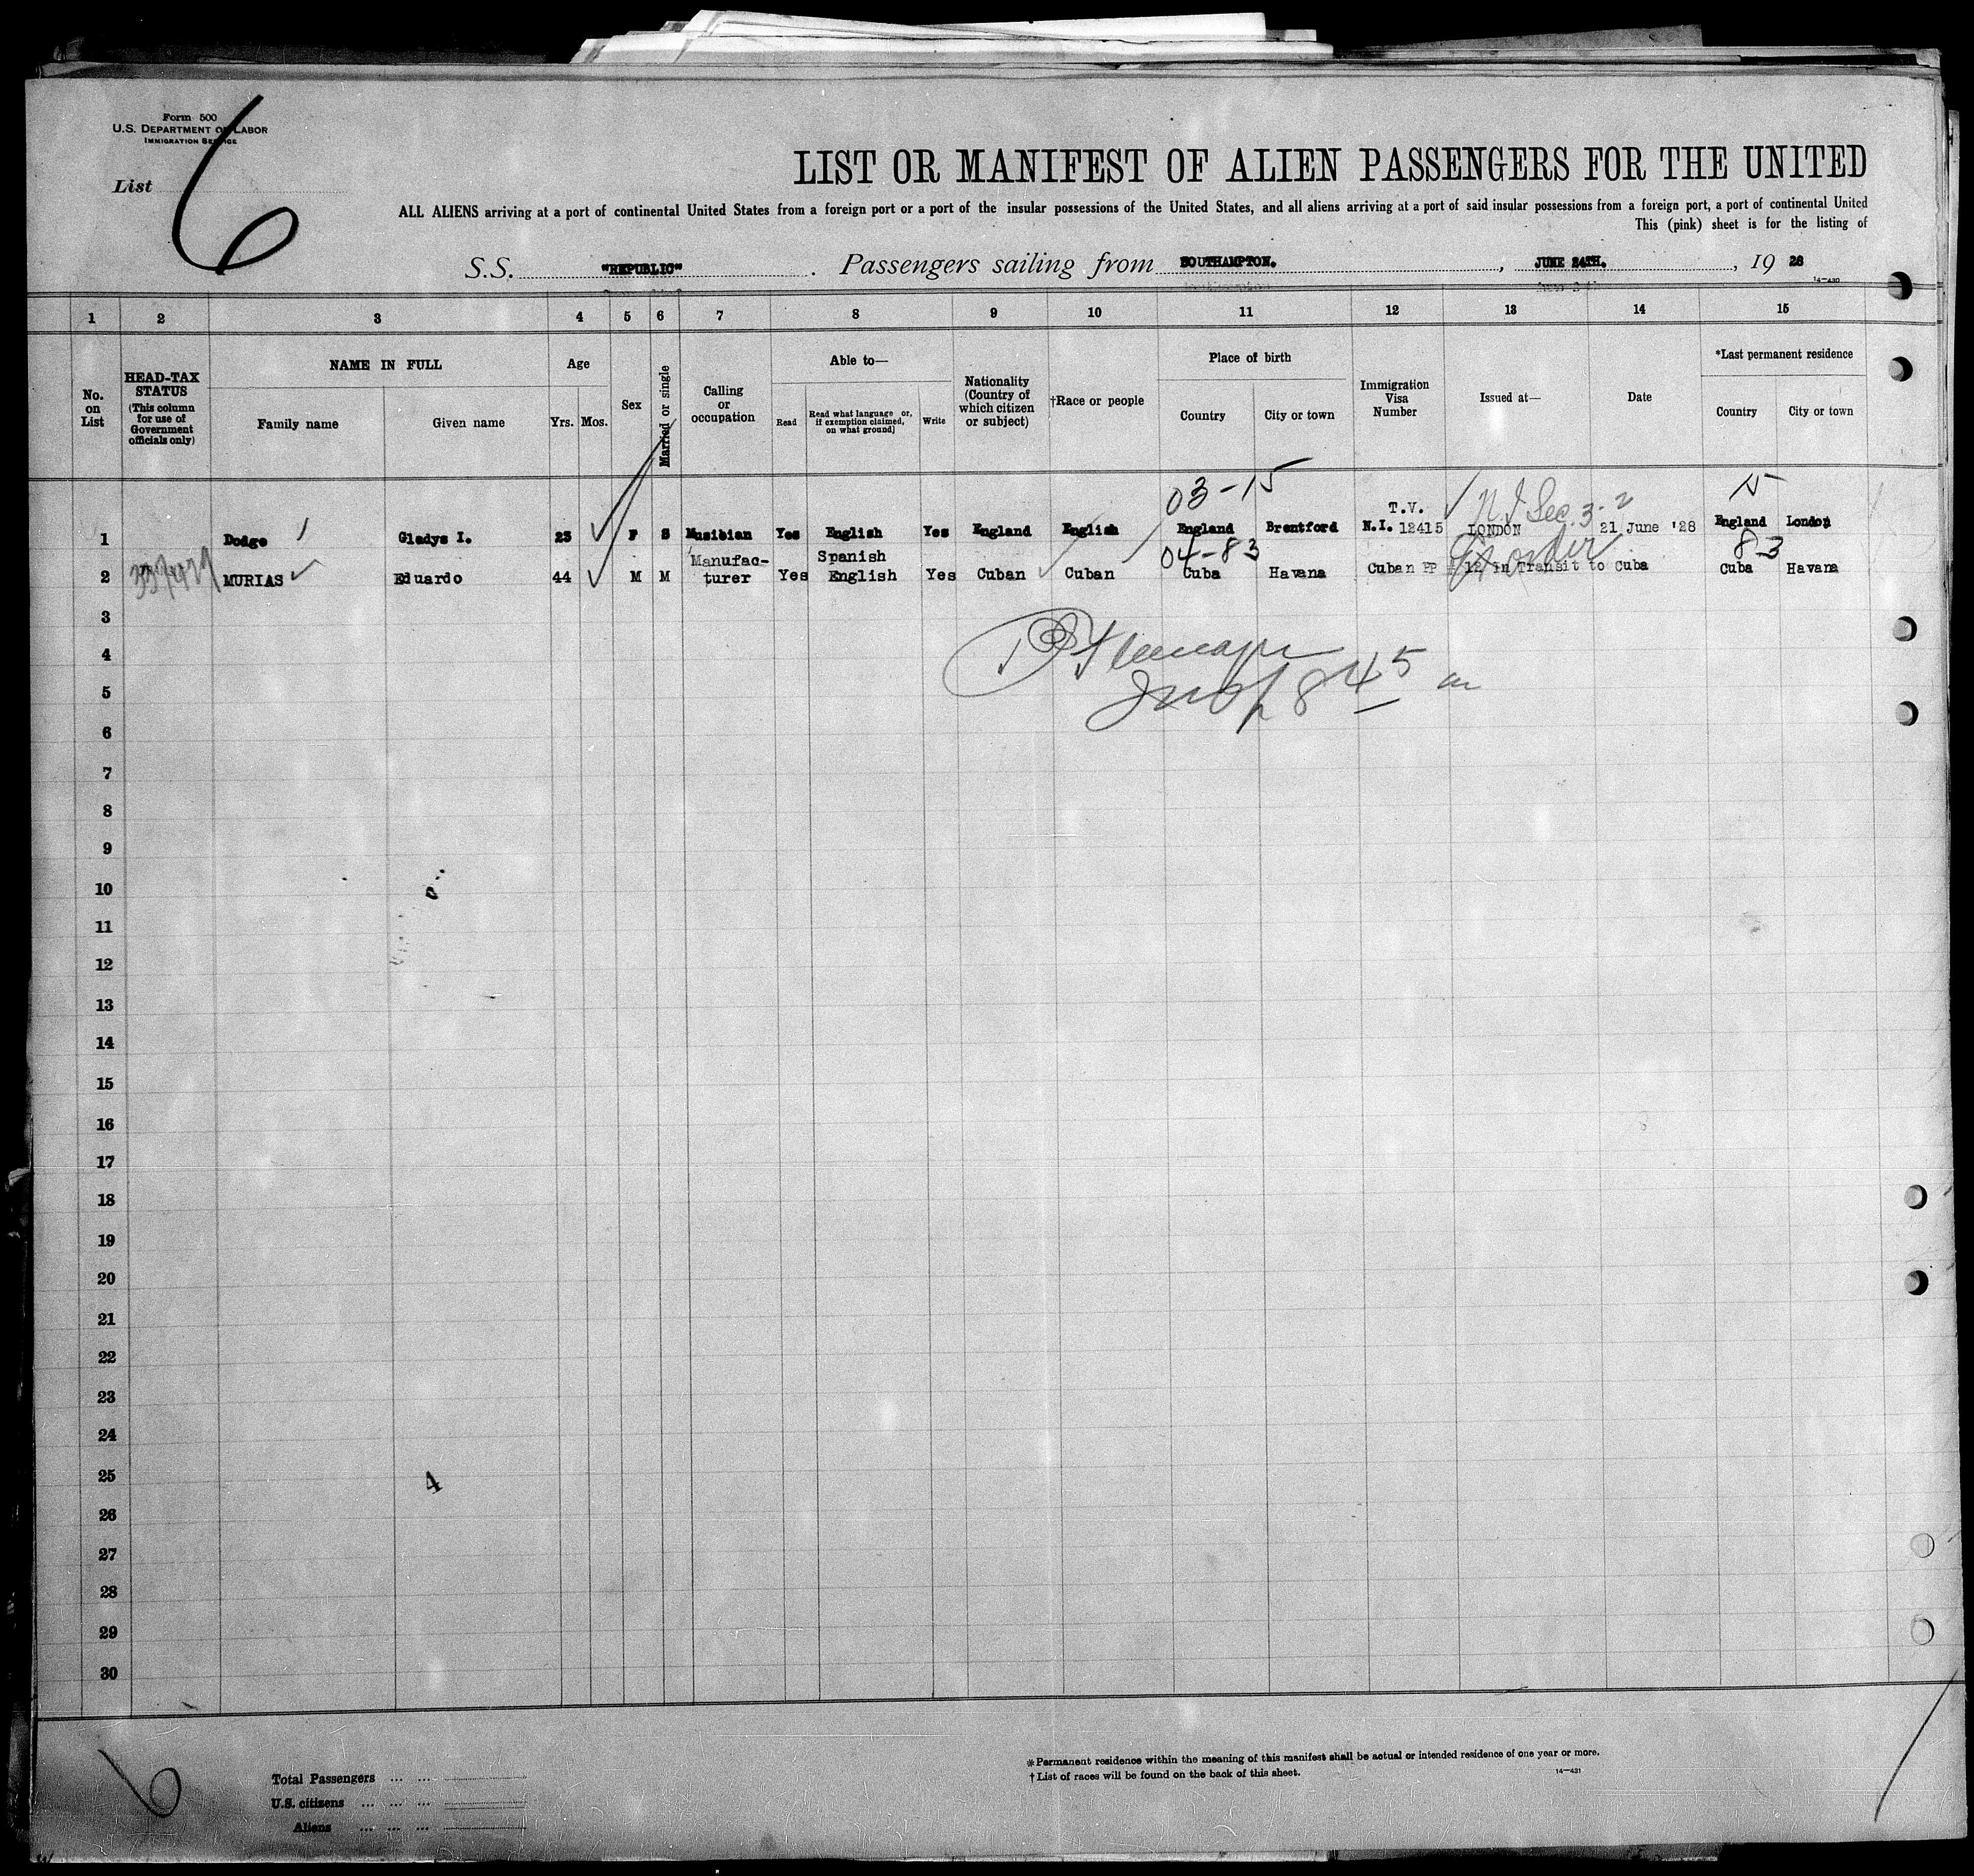 Form 500
U.S. DEPARTMENT OF LABOR
IMMIGRATION SERVICE
List 6
LIST OR MANIFEST OF ALIEN PASSENGERS FOR THE UNITED
ALL ALIENS arriving at a port of continental United States from a foreign port or a port of the insular possessions of the United States, and all aliens arriving at a port of said insular possessions from a foreign port, a port of continental United
This (pink) sheet is for the listing of
S.S. "REPUBLIC" . Passengers sailing from SOUTHAMPTON. , JUNE 24TH. , 19 28
14-430
1 2 3 4 5 6 7 8 9 10 11 12 13 14 15
No. on List
HEAD-TAX STATUS (This column for use of Government officials only)
NAME IN FULL
Family name Given name
Age
Yrs. Mos.
Sex
Married or single
Calling or occupation
Able to—
Read Read what language or, if exemption claimed, on what ground) Write
Nationality (Country of which citizen or subject)
†Race or people
Place of birth
Country City or town
Immigration Visa Number
Issued at—
Date
*Last permanent residence
Country City or town
03-15 15
T.V. N.I. Sec. 3-2
1 Dodge Gladys I. 23 F S Musibian Yes English Yes England English England Brentford N.I. 12415 LONDON 21 June '28 England London
04-83 83
Manufac- Spanish
2 MURIAS Eduardo 44 M M turer Yes English Yes Cuban Cuban Cuba Havana Cuban PP 12 in Transit to Cuba Cuba Havana
3
4
5
845
6
7
8
9
10
11
12
13
14
15
16
17
18
19
20
21
22
23
24
25
4
26
27
28
29
30
6
Total Passengers ... ...
U.S. citizens ... ... ...
Aliens ... ... ...
*Permanent residence within the meaning of this manifest shall be actual or intended residence of one year or more.
†List of races will be found on the back of this sheet.
14-431